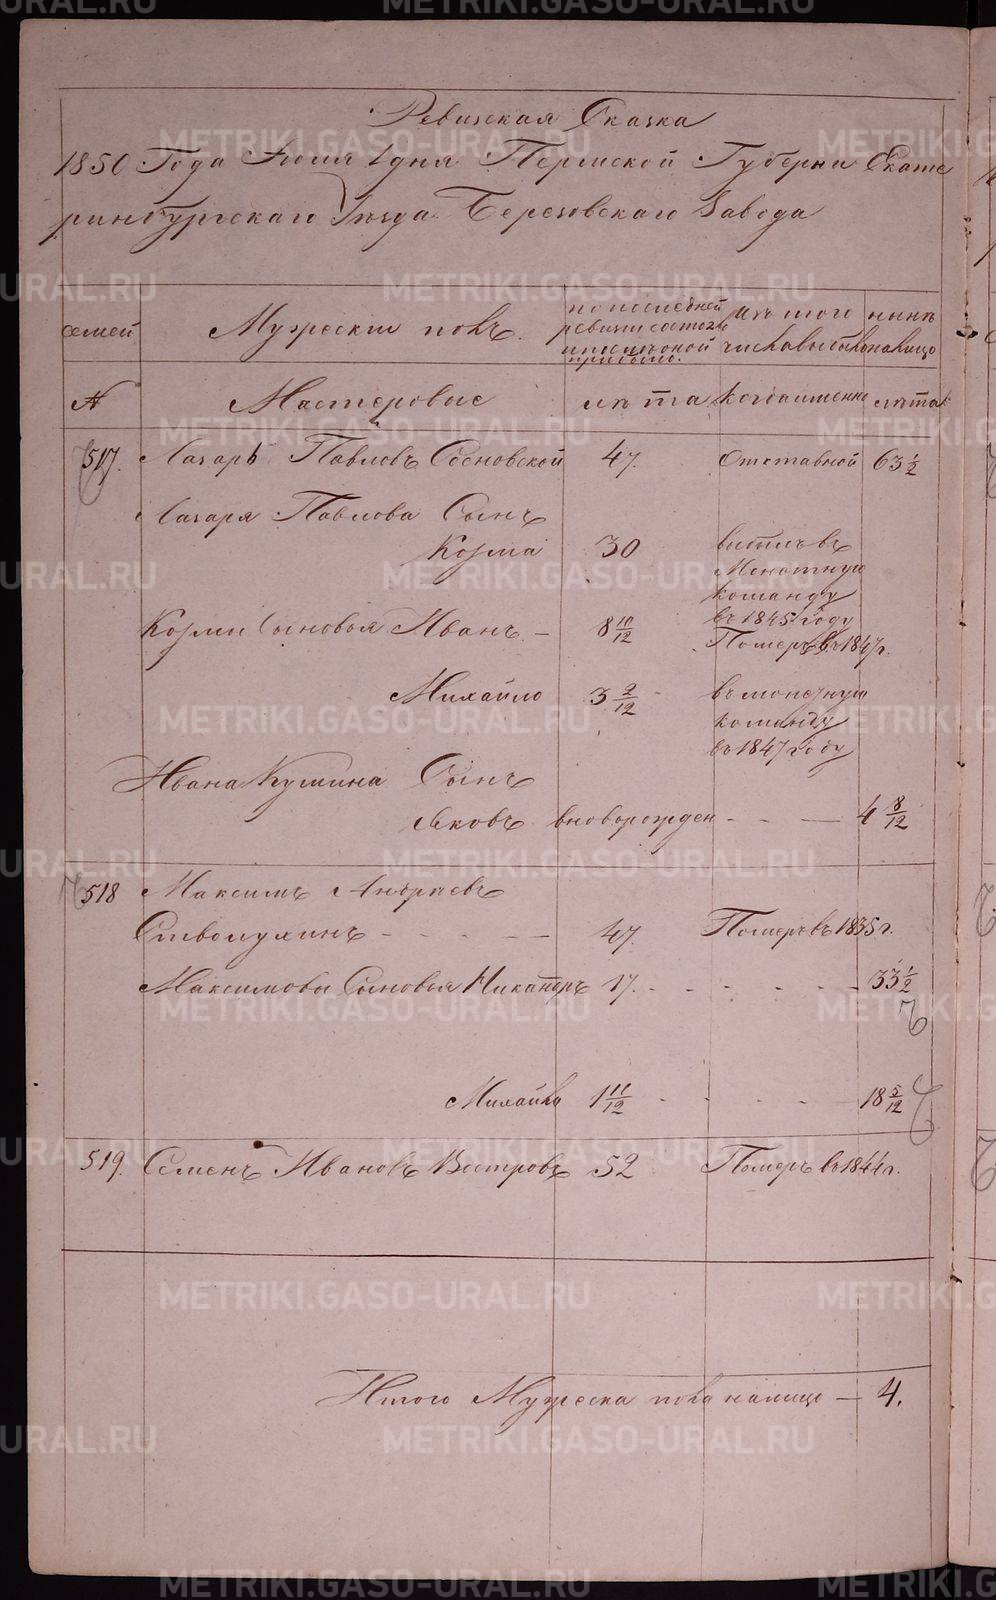 Ревизская Сказка
1850 Года Июня 1 дня Пермской Губерни Екате
ринбургскаго Уезда Березовскаго Завода
семей
Мужеский полъ.
по последней
ревизии состояло
и после оной
прибыло.
изъ того
числа выбыло
ныне
на лицо
№
Мастеровые
лета
когда именно
лета
517.
Лазарь Павловъ Сосновской
47.
Отставной
63 1/2
Лазаря Павлова Сынъ
Козма
30
въ
Монетную
команду
въ 1845 году
Козми Сыновья Иванъ –
8 10/12
Померъ въ 1847 г.
Михайло
3 2/12
въ монетную
команду
въ 1847 году
Ивана Кузмина Сынъ
Яковъ
вновь рожден
4 8/12
518
Максимъ Андреевъ
47.
Померъ въ 1835 г.
Максимовы Сыновья Никаноръ
17.
33 1/2
Михайла
1 11/12
18 5/12
519.
Семенъ Ивановъ Востровъ
52
Померъ въ 1844 г.
Итого Мужеска пола налицо – 4.
METRIKI.GASO-URAL.RU